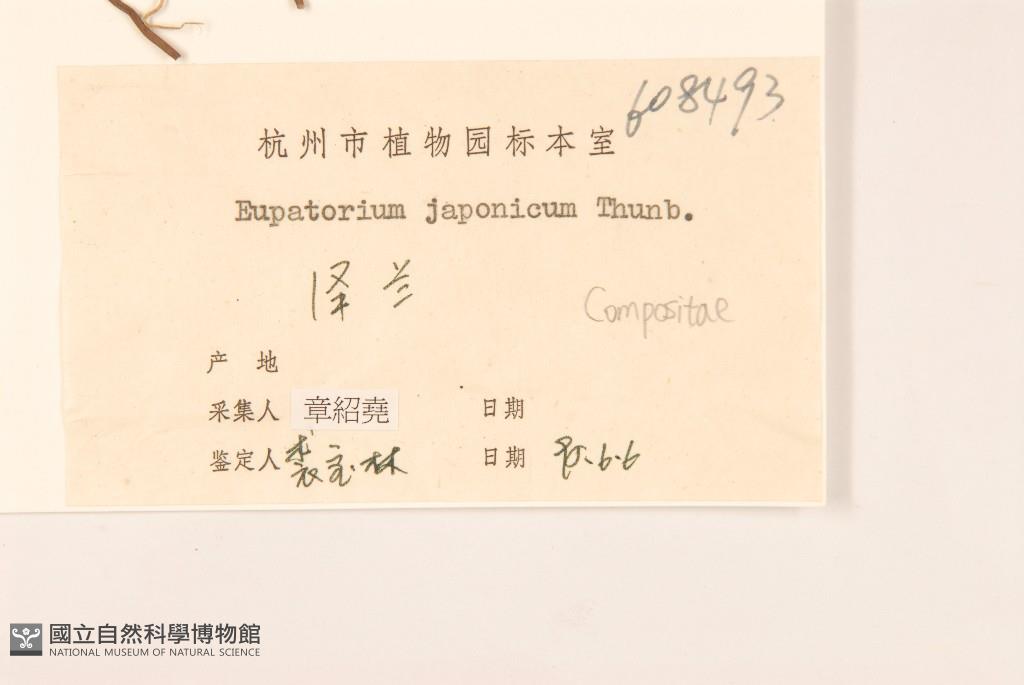 608493
杭州市植物园标本室
Eupatorium japonicum Thunb.
泽兰
Compositae
产地
采集人 章紹堯 日期
鉴定人 裘宝林 日期 85.6.6
國立自然科學博物館
NATIONAL MUSEUM OF NATURAL SCIENCE